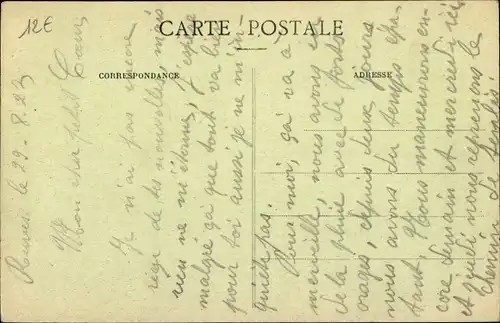 12€
CARTE POSTALE
CORRESPONDANCE
ADRESSE
le 29-8-23
Mon cher petit
Je n'ai pas encore
reçu de tes nouvelles, mais
rien ne m'étonne, j'espère
malgré ça que tout va bien
pour toi aussi je ne m'in-
quiète pas.
Pour moi, ça va à
merveille, nous avons eu
de la pluie avec de forts
orages, depuis deux jours
nous avons du temps épa-
tant. Nous manœuvrons en-
core demain et mercredi ici
et jeudi nous reprenons le
chemin de